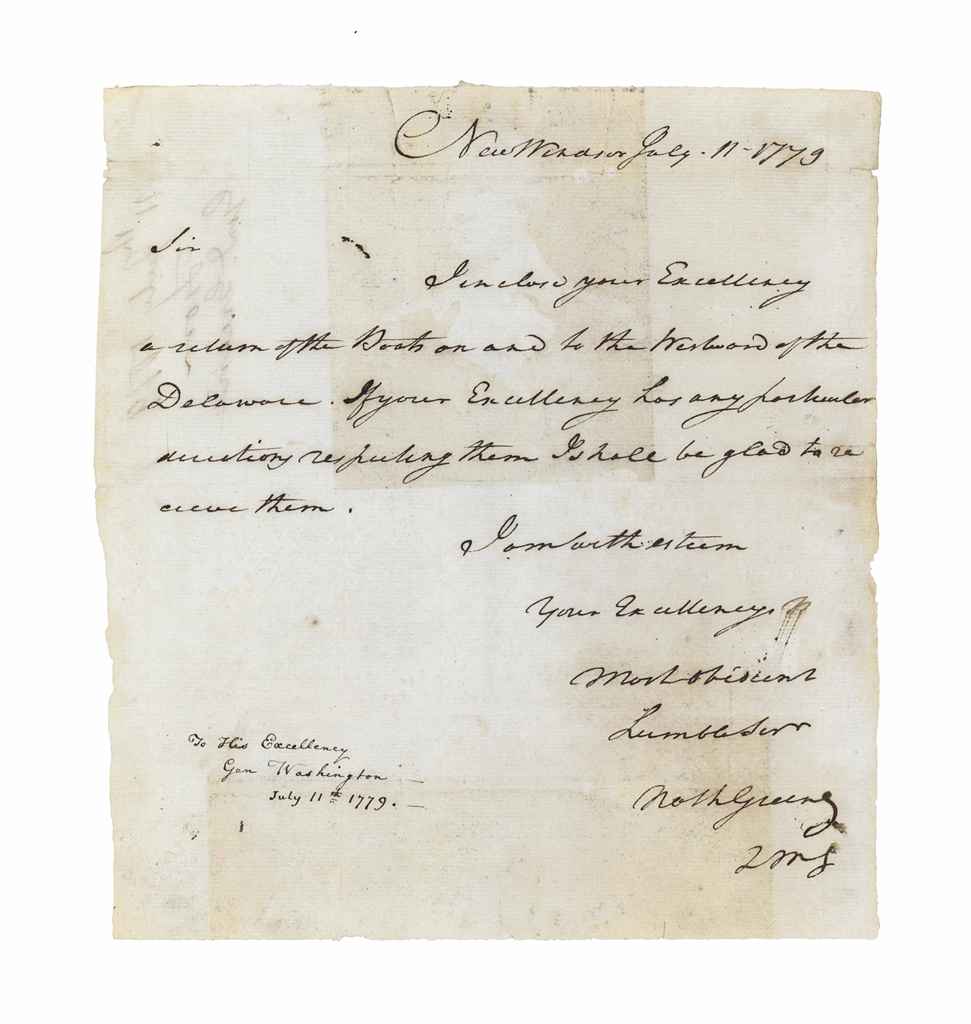 New Windsor July. 11-1779
Sir
I inclose your Excellency
a return of the Boats on and to the Westward of the
Delaware. If your Excellency has any particular
directions respecting them I shall be glad to re
cieve them.
I am with esteem
Your Excellencys
Most obedient
humble Serv
Nath Greene
QMG
To His Excellency
Gen Washington
July 11th 1779.